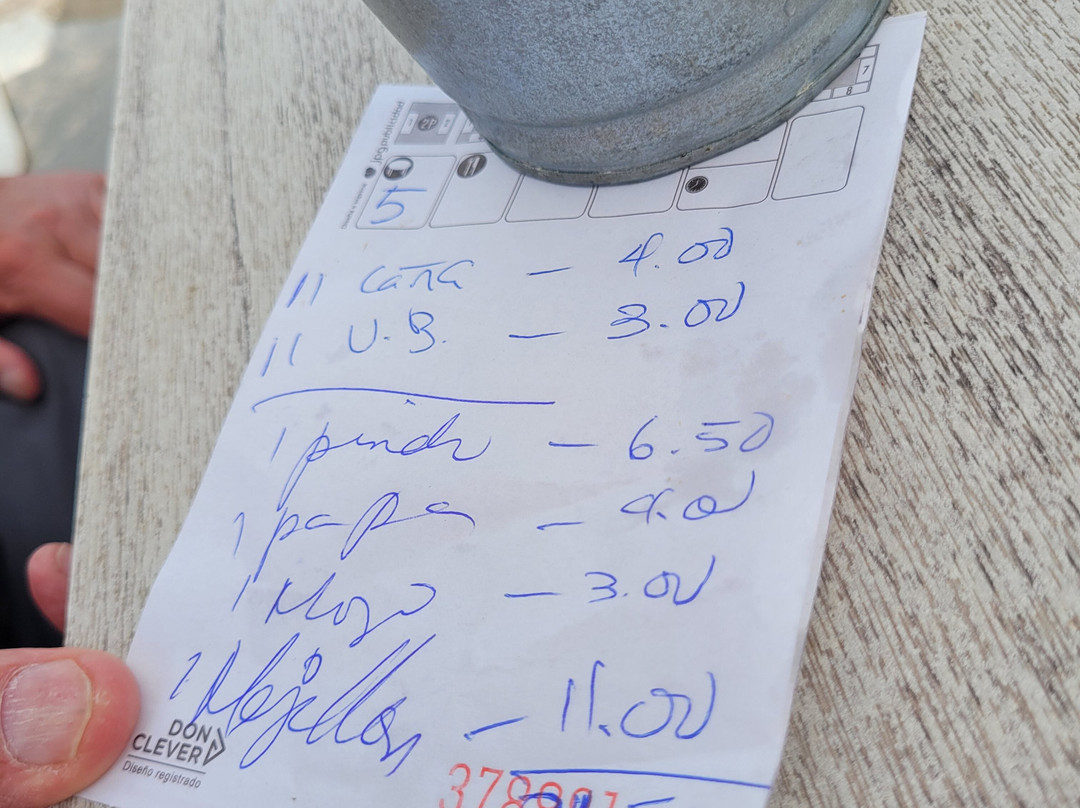 papelillo
7
8
5
11 caña - 4.00
11 U.B. - 3.00
1 pincho - 6.50
1 papa - 4.00
1 Mojo - 3.00
1 Mejillon - 11.00
DON
CLEVER
Diseño registrado